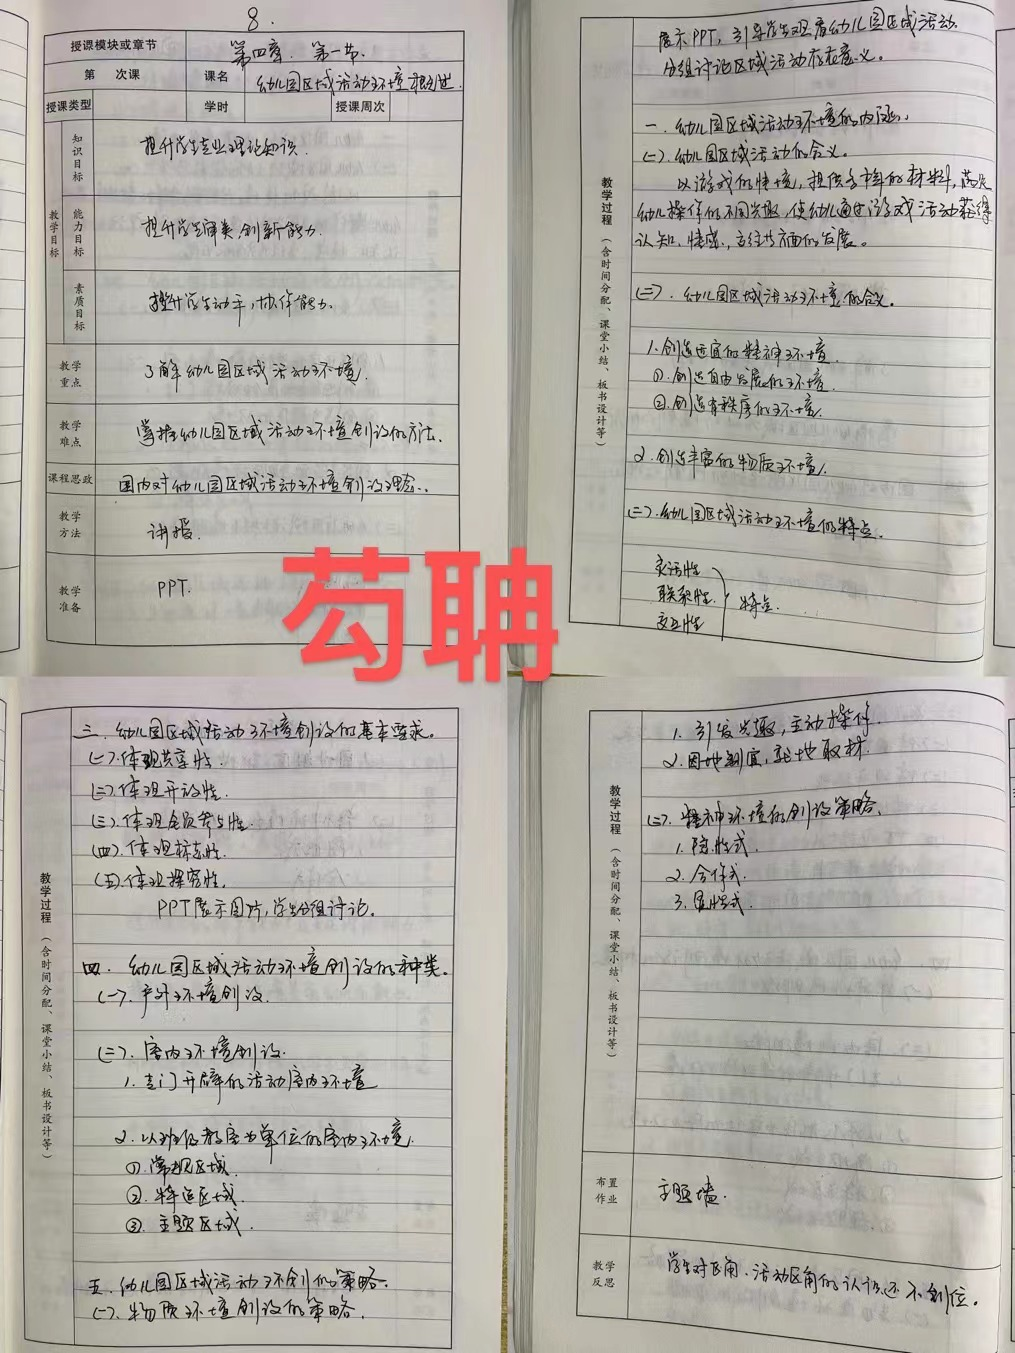 8.
授课模块或章节 第四章. 第一节.
第 次课 课名 幼儿园区域活动环境概述.
授课类型 学时 授课周次
教学目标
知识目标 提升学生专业理论知识.
能力目标 提升学生审美,创新能力.
素质目标 提升学生动手,协作能力.
教学重点 了解幼儿园区域活动环境.
教学难点 掌握幼儿园区域活动环境创设的方法.
课程思政 国内对幼儿园区域活动环境创设理念.
教学方法 讲授.
教学准备 PPT.
教学过程(含时间分配、课堂小结、板书设计等)
展示PPT,引导学生观看幼儿园区域活动.
分组讨论区域活动存在意义。
一、幼儿园区域活动环境的内涵.
(一).幼儿园区域活动的含义。
以游戏的情境,提供多样的材料,满足
幼儿操作的不同兴趣,使幼儿通过游戏活动获得
认知、情感、交往等方面的发展。
(二).幼儿园区域活动环境的含义.
1.创造适宜的精神环境.
①.创造自由发展的环境.
②.创造有秩序的环境.
2.创造丰富的物质环境.
(三).幼儿园区域活动环境的特点.
灵活性
联系性 特点.
交互性
芶聃
教学过程(含时间分配、课堂小结、板书设计等)
三.幼儿园区域活动环境创设的基本要求。
(一).体现共享性.
(二).体现开放性.
(三).体现全员参与性.
(四).体现标志性.
(五).体现探究性.
PPT展示图片,学生分组讨论.
四.幼儿园区域活动环境创设的种类.
(一).户外环境创设.
(二).室内环境创设.
1.专门开辟的活动室内环境
2.以班级教室为单位的室内环境.
①.常规区域.
②.特色区域.
③.主题区域.
五.幼儿园区域活动环创的策略.
(一).物质环境创设的策略.
教学过程(含时间分配、课堂小结、板书设计等)
1.引发兴趣,主动操作.
2.因地制宜,就地取材.
(二).精神环境的创设策略.
1.隐性式.
2.合作式.
3.显性式.
布置作业 主题墙.
教学反思 学生对区角、活动区角的认识还不到位。